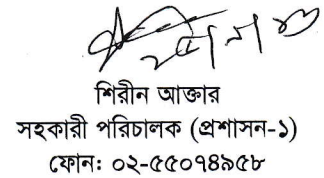 শিরীন আক্তার
সহকারী পরিচালক (প্রশাসন-১)
ফোন: ০২-৫৫০৭৪৯৫৮